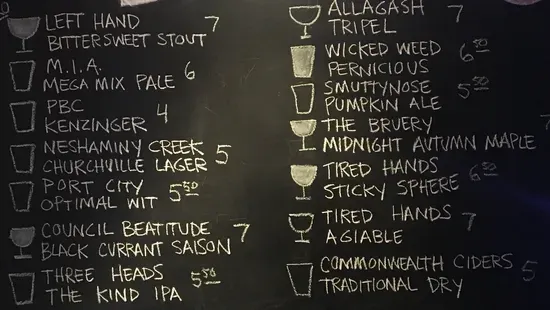 LEFT HAND 7
BITTERSWEET STOUT
M.I.A. 6
MEGA MIX PALE
PBC 4
KENZINGER
NESHAMINY CREEK 5
CHURCHVILLE LAGER
PORT CITY 5.50
OPTIMAL WIT
COUNCIL BEATITUDE 7
BLACK CURRANT SAISON
THREE HEADS 5.50
THE KIND IPA
ALLAGASH 7
TRIPEL
WICKED WEED 6.50
PERNICIOUS
SMUTTYNOSE 5.50
PUMPKIN ALE
THE BRUERY 7
MIDNIGHT AUTUMN MAPLE
TIRED HANDS 6.50
STICKY SPHERE
TIRED HANDS 7
AGIABLE
COMMONWEALTH CIDERS 5
TRADITIONAL DRY